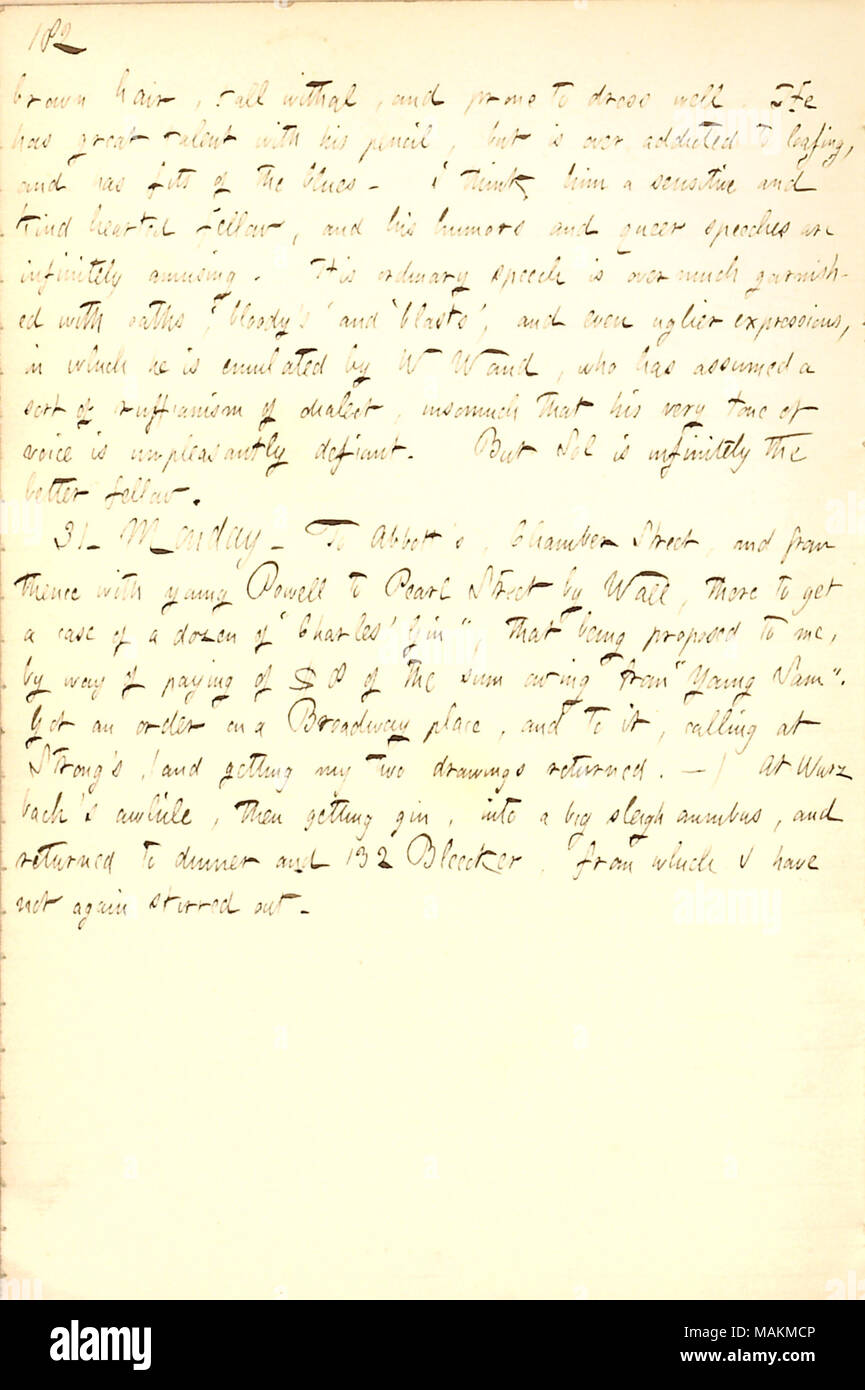 182
brown hair, tall withal, and prone to dress well. He
has great talent with his pencil, but is over addicted to loafing,
and has fits of the blues — I think him a sensitive and
kind hearted fellow, and his humors and queer speeches are
infinitely amusing. His ordinary speech is overmuch garnish-
ed with oaths, 'bloody's' and 'blasts', and even uglier expressions,
in which he is emulated by W Waud, who has assumed a
sort of ruffianism of dialect, insomuch that his very tone of
voice is unpleasantly defiant. But Sol is infinitely the
better fellow.
31. Monday — To Abbott's, Chamber Street, and from
thence with young Powell to Pearl Street by Wall, there to get
a case of a dozen of "Charles' Gin", that being proposed to me,
by way of paying of $8 of the sum owing from "Young Sam".
Got an order on a Broadway place, and to it, calling at
Strong's, (and getting my two drawings returned. —) At Wurz
bach's awhile, then getting gin, into a big sleigh omnibus, and
returned to dinner and 132 Bleecker, from which I have
not again stirred out —
alamy
Image ID: MAKMCP
www.alamy.com